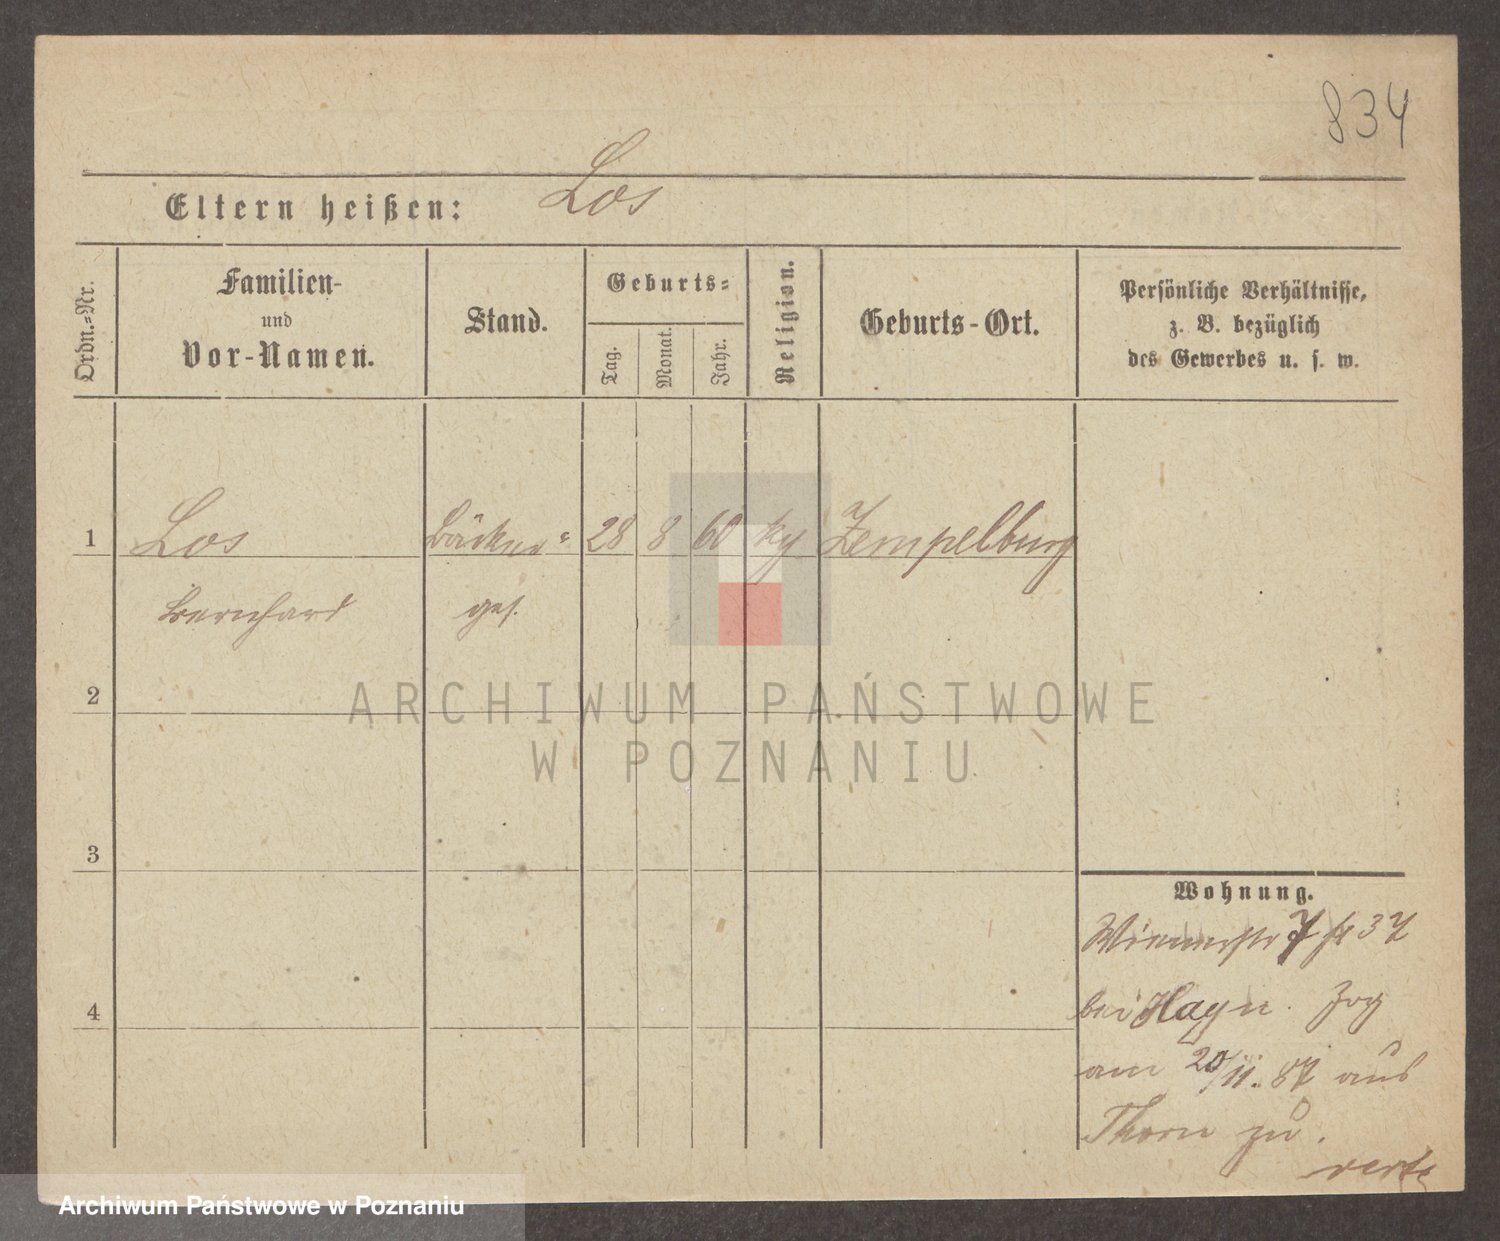 834
Eltern heißen: Los
Ordn.-Nr.
Familien-
und
Vor-Namen.
Stand.
Geburts-
Tag.
Monat.
Jahr.
Religion.
Geburts-Ort.
Persönliche Verhältnisse,
z. B. bezüglich
des Gewerbes u. s. w.
1 Los Bäcker- 28 8 60 Zempelburg
Bernhard ges.
2
3
4
ARCHIWUM PAŃSTWOWE
W POZNANIU
Wohnung.
37
bei Hayn. Zog
am 20/11. 87 aus
Thorn zu.
verte
Archiwum Państwowe w Poznaniu